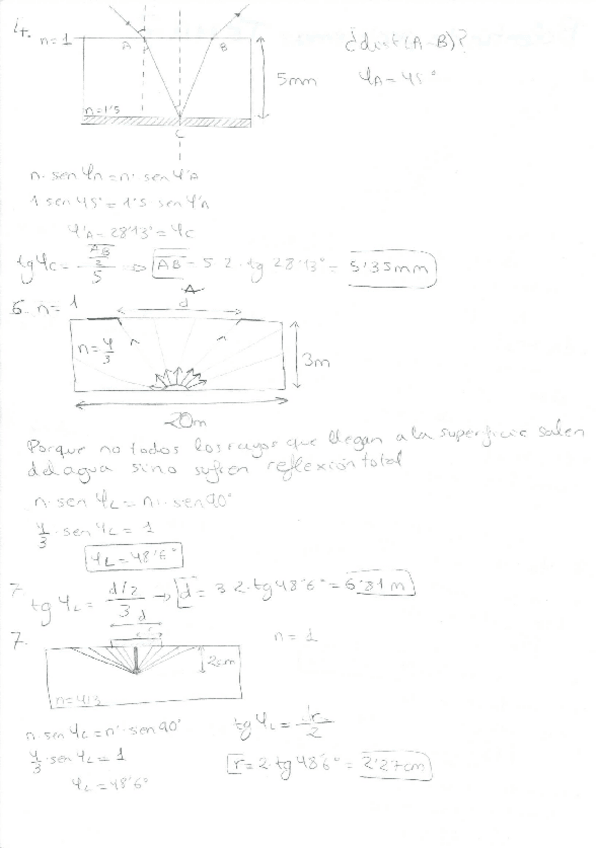 4.
n=1
A
B
¿dist(A-B)?
φA=45°
5mm
n=1'5
C
n· sen φA = n'· sen φ'A
1 sen 45° = 1'5 · sen φ'A
φ'A = 28'13° = φC
tg φC = (AB/2)/5 ⇒ AB = 5·2·tg 28'13° = 5'35mm
6. n=1
d
n=4/3
3m
20m
Porque no todos los rayos que llegan a la superficie salen
del agua sino sufren reflexión total
n· sen φL = n'· sen 90°
4/3 · sen φL = 1
φL = 48'6°
7
tg φL = (d/2)/3 → d = 3·2·tg 48'6° = 6'81m
7.
d
r
n=1
2cm
n=4/3
n sen φL = n'· sen 90°
tg φL = r/2
4/3 · sen φL = 1
r = 2·tg 48'6° = 2'27cm
φL = 48'6°